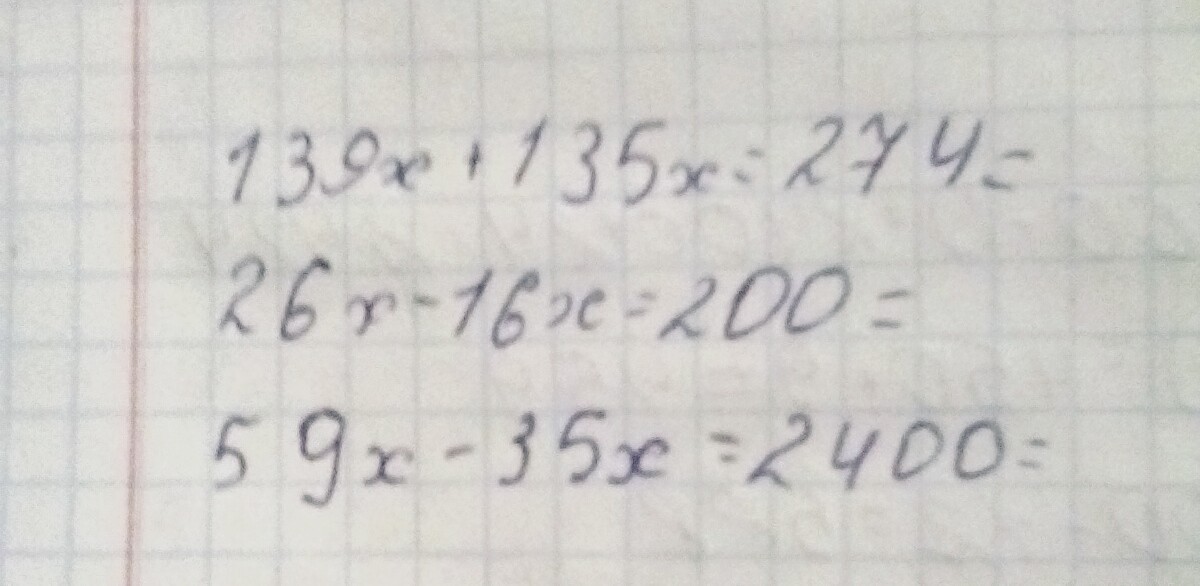 139x+135x=274=
26x-16x=200=
59x-35x=2400=